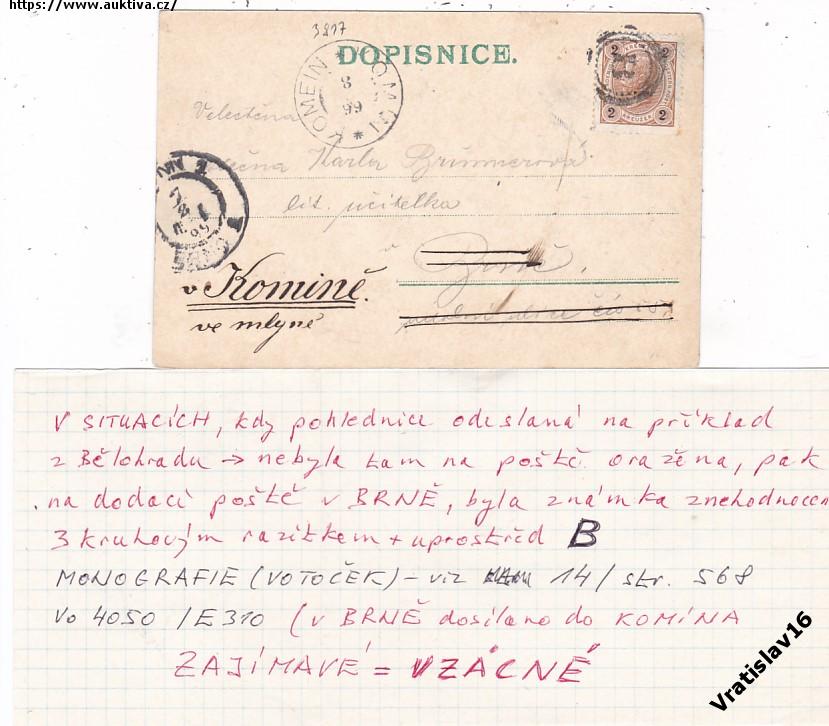 https://www.auktiva.cz/
3817
DOPISNICE.
KOMEIN
KOMÍN
8
99
2 2
2 KREUZER 2
Velectěná
slečna Karla Brünnerová
lit. učitelka
v
Brně.
v Komíně.
ve mlýně
V SITUACÍCH, kdy pohlednice odeslaná na příklad
z Bělohradu → nebyla tam na poště oražena, pak
na dodací poště v BRNĚ, byla známka znehodnocen
3 kruhovým razítkem + uprostřed B
MONOGRAFIE (VOTOČEK) - viz 14/ str. 568
Vo 4050 /E310 (v BRNĚ dosíláno do KOMÍNA
ZAJÍMAVÉ = VZÁCNÉ
Vratislav16